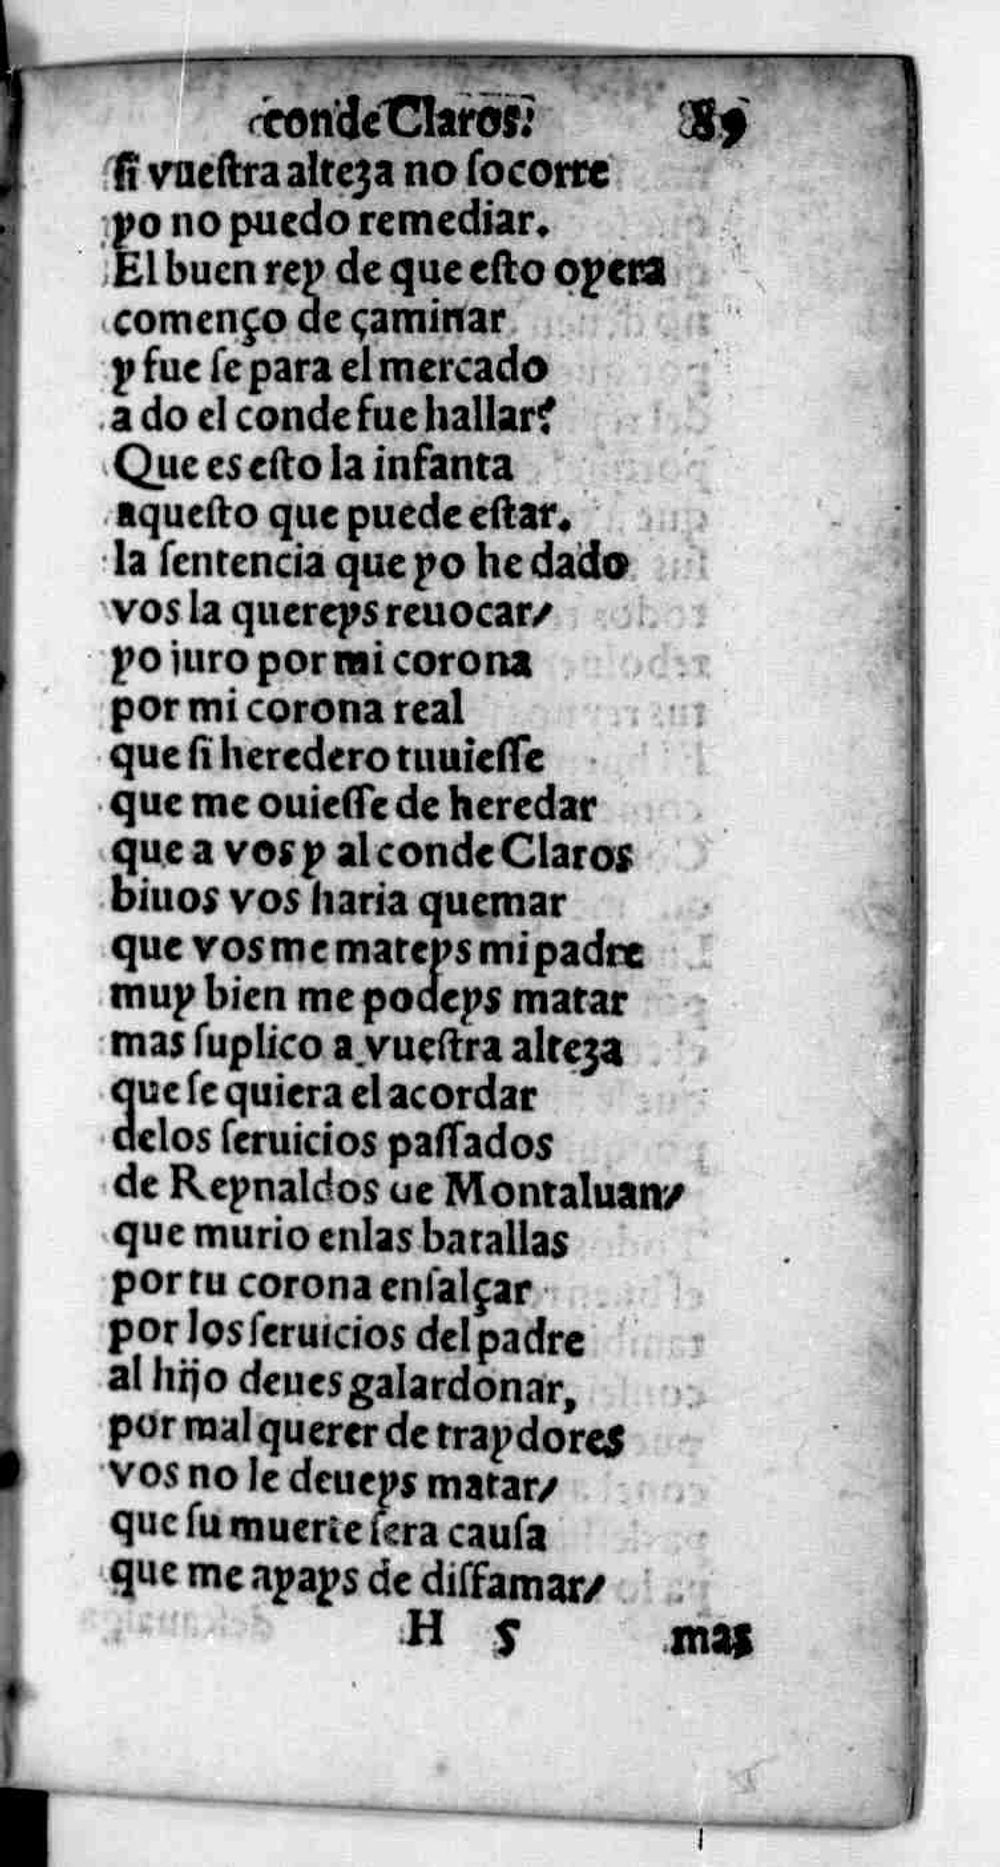 conde Claros. 89
si vuestra alteza no socorre
yo no puedo remediar.
El buen rey de que esto oyera
començo de çaminar
y fue se para el mercado
a do el conde fue hallar:
Que es esto la infanta
aquesto que puede estar.
la sentencia que yo he dado
vos la quereys reuocar/
yo iuro por mi corona
por mi corona real
que si heredero tuuiesse
que me ouiesse de heredar
que a vos y al conde Claros
biuos vos haria quemar
que vos me mateys mi padre
muy bien me podeys matar
mas suplico a vuestra alteza
que se quiera el acordar
delos seruicios passados
de Reynaldos de Montaluan/
que murio enlas batallas
por tu corona ensalçar
por los seruicios del padre
al hijo deues galardonar,
por mal querer de traydores
vos no le deueys matar/
que su muerte sera causa
que me ayays de disfamar/
H 5 mas